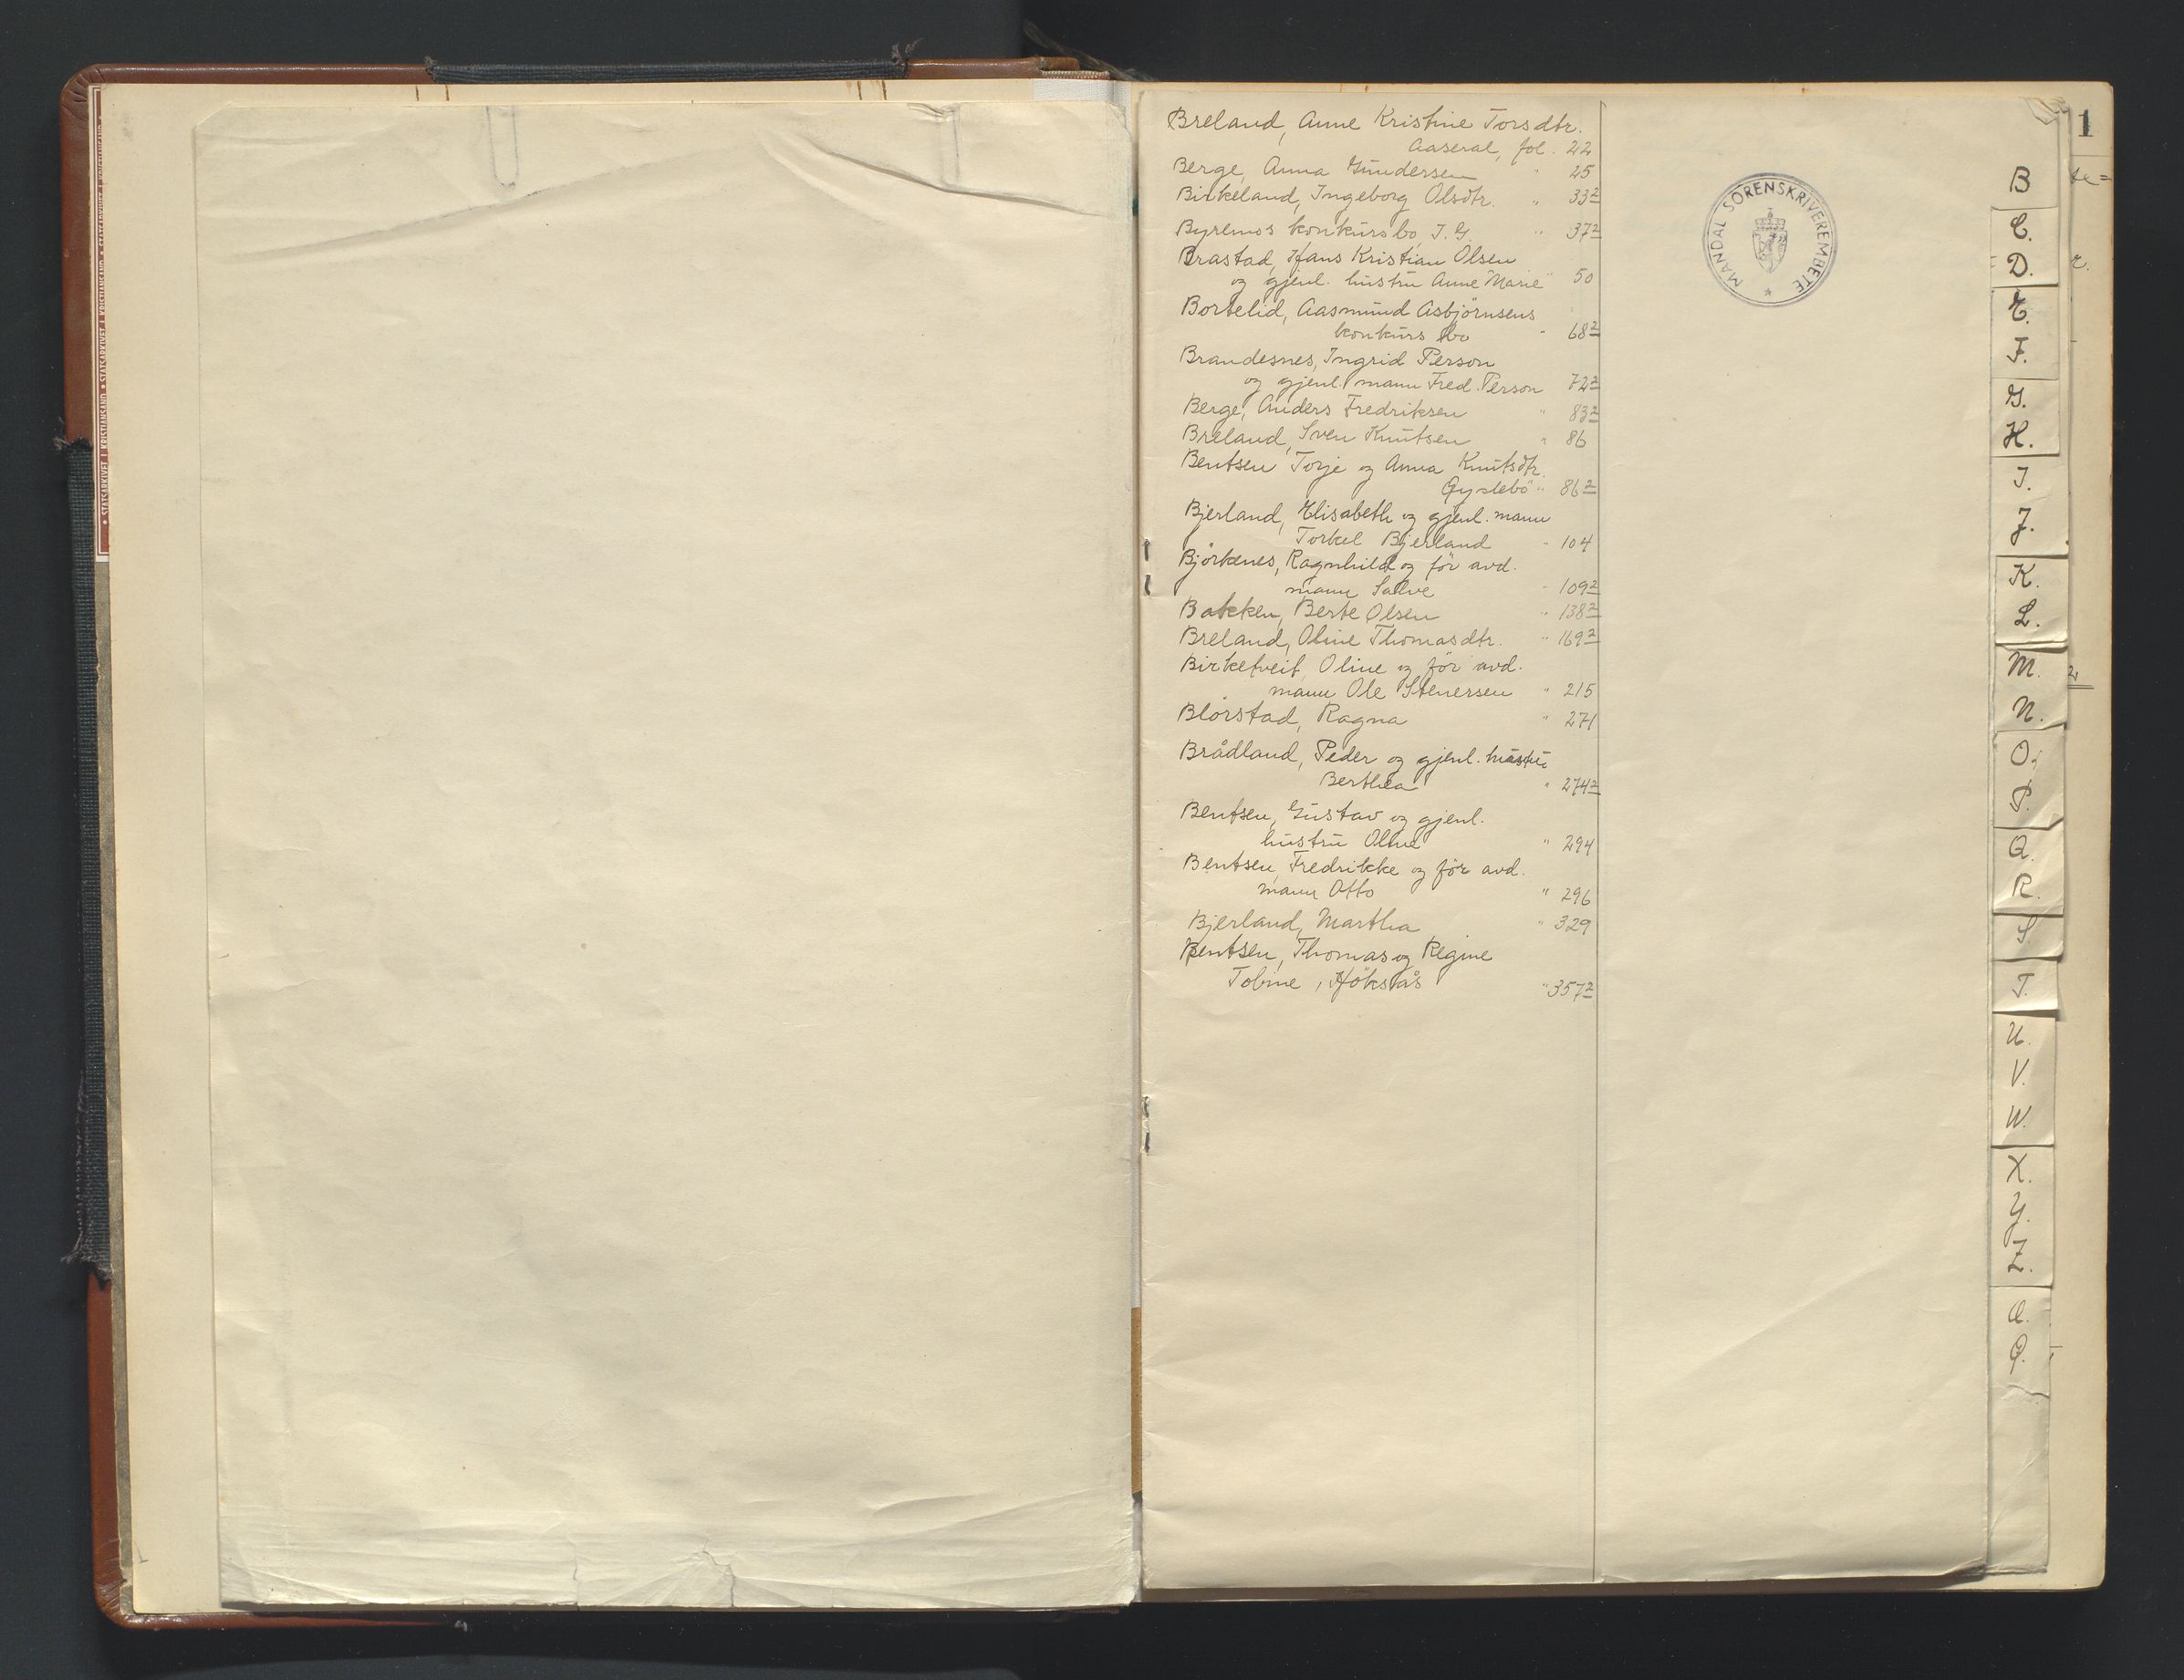 Breland, Anne Kristine Torsdtr.
Aaseral, fol. 22
Berge, Anna Gundersen " 25
Birkeland, Ingeborg Olsdtr. " 33²
Byremos konkursbo, I. G. " 37²
Brastad, Hans Kristian Olsen
og gjenl. hustru Anne Marie " 50
Bortelid, Aasmund Asbjörnsens
konkurs bo " 68²
Brandesnes, Ingrid Person
og gjenl. mann Fred. Person 72²
Berge, Anders Fredriksen " 83²
Breland, Sven Knutsen " 86
Bentsen Torje og Anna Knutsdtr.
Øyslebö " 86²
Bjerland, Elisabeth og gjenl. mann
Torkel Bjerland " 104
Björkenes, Ragnhild og för avd.
mann Salve " 109²
Bakken, Berte Olsen " 138²
Breland, Oline Thomasdtr. " 169²
Birketveit, Oline og för avd.
mann Ole Stenersen " 215
Blörstad, Ragna " 271
Brådland, Peder og gjenl. hustru
Berthea " 274²
Bentsen, Gustav og gjenl.
hustru Oline " 294
Bentsen, Fredrikke og för avd.
mann Otto " 296
Bjerland, Martha " 329
Bentsen, Thomas og Regine
Tobine, Höksås " 357²
MANDAL SORENSKRIVEREMBETE
1
B
C.
D.
E.
F.
G.
H.
I.
J.
K.
L.
M.
N.
O.
P.
Q.
R.
S.
T.
U.
V.
W.
X.
Y.
Z.
Æ.
Ø.
• STATSARKIVET I KRISTIANSAND • STATSARKIVET I KRISTIANSAND